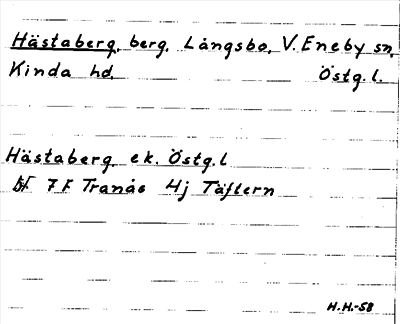 Hästaberg, berg, Långsbo, V. Eneby sn,
Kinda hd, Östg.l.
Hästaberg ek. Östg.l
bf 7 F Tranås Hj Täftern
H.H.-58